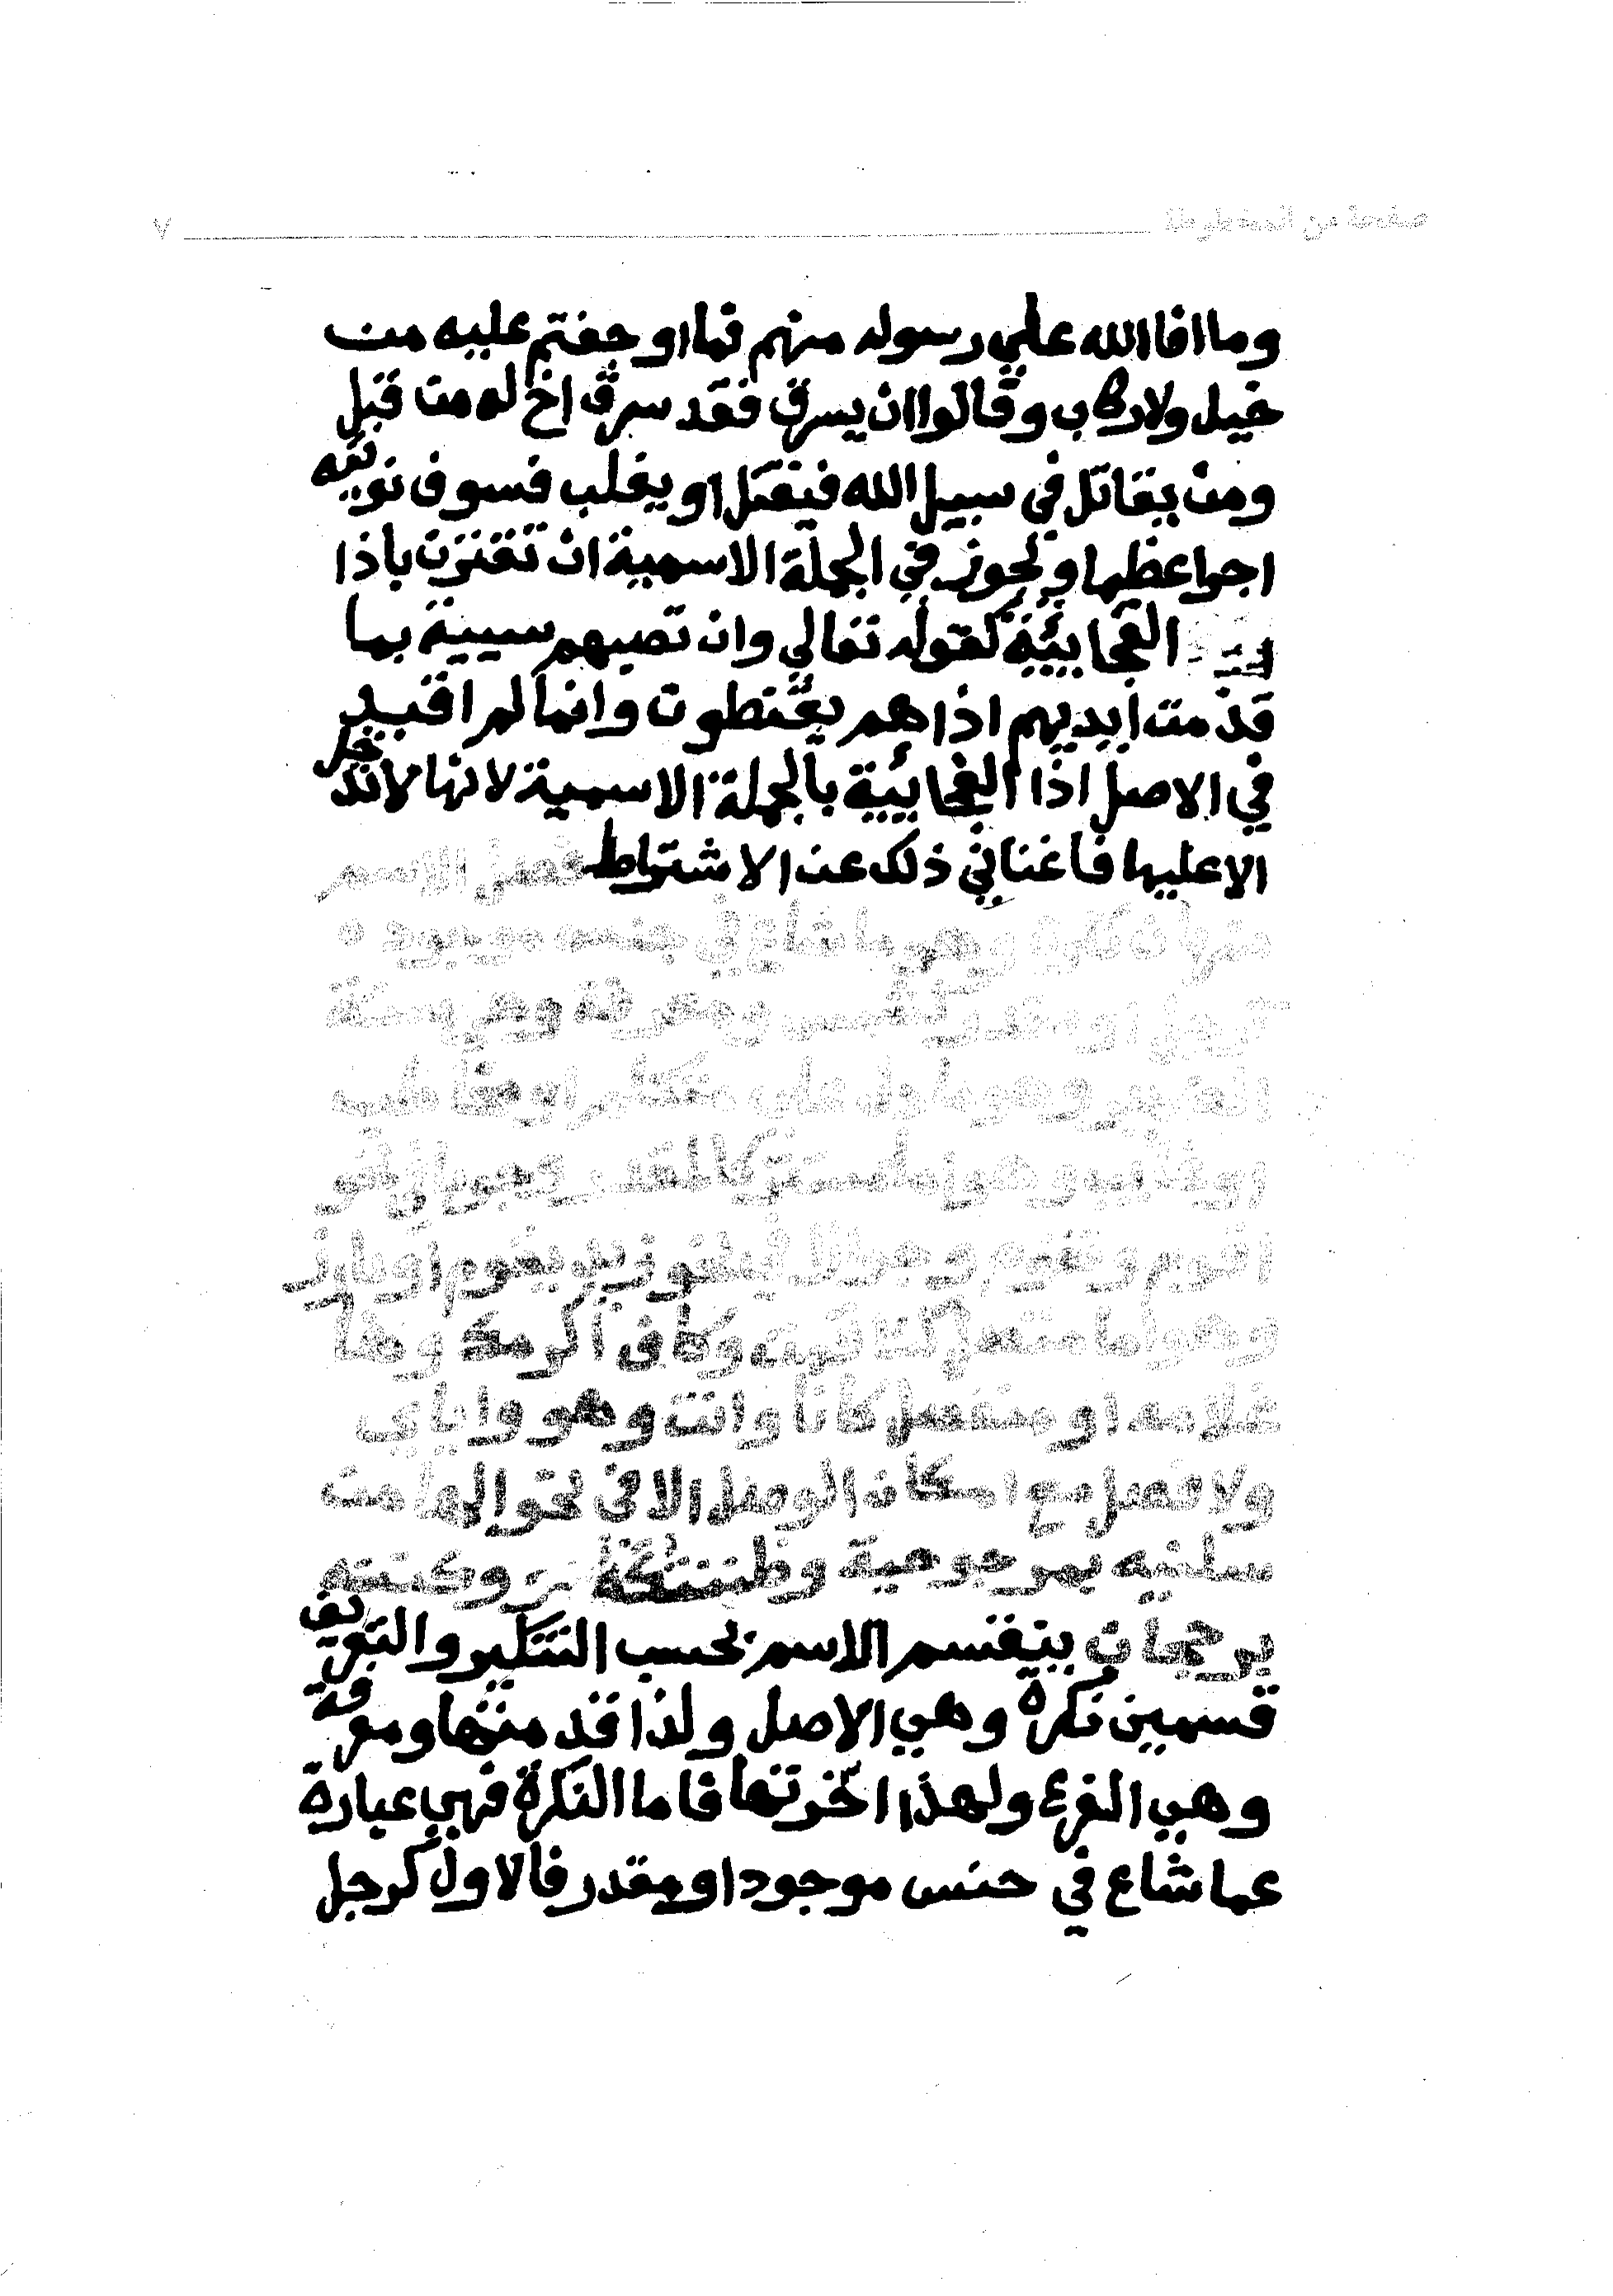 صفحة من المخطوطة ٧
وما افا الله علي رسوله منهم فما اوجفتم عليه من
خيل ولا ركاب وقالوا ان يسرق فقد سرق اخ له من قبل
ومن يقاتل في سبيل الله فيقتل او يغلب فسوف نوتيه
اجرا عظيما ويجوز في الجملة الاسمية ان تقترن باذا
الفجاييّة كقوله تعالي وان تصبهم سيية بما
قدمت ايديهم اذا هم يقنطون وانما لم اقيد
في الاصل اذا الفجاييّة بالجملة الاسمية لانها لا تدخل
الا عليها فاغناني ذلك عن الاشتراط فصل الاسم
ضربان نكرة وهو ما شاع في جنس موجود
او مقدر ومعرفة وهي ستة
الضمير وهو ما دل علي متكلم او مخاطب
او غايب وهو اما مستتر كالمقدر وجوبا في نحو
اقوم ونقوم وجوازا في نحو زيد يقوم او بارز
وهو اما متصل كتا قمت وكاف اكرمك وها
غلامه او منفصل كانا وانت وهو واياي
ولا فصل مع امكان الوصل الا في نحو الها من
سلنيه بمرجوحية وظننتكه وكنته
برجحان ينقسم الاسم بحسب التنكير والتعريف
قسمين نكرة وهي الاصل ولذا قدمتها ومعرفة
وهي الفرع ولهذا اخرتها فاما النكرة فهي عبارة
عما شاع في جنس موجود او مقدر فالاول كرجل